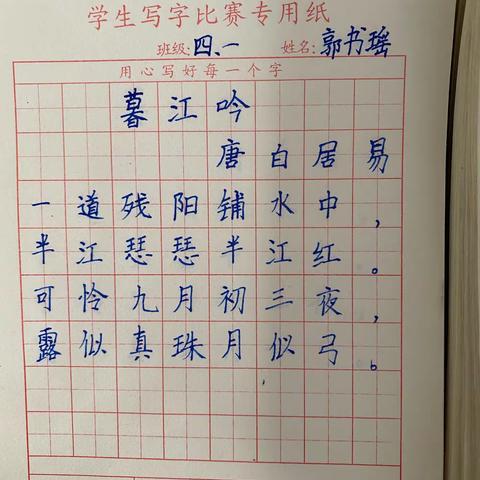 学生写字比赛专用纸
班级:四、一 姓名:郭书瑶
用心写好每一个字
暮江吟
唐白居易
一道残阳铺水中，
半江瑟瑟半江红。
可怜九月初三夜，
露似真珠月似弓。